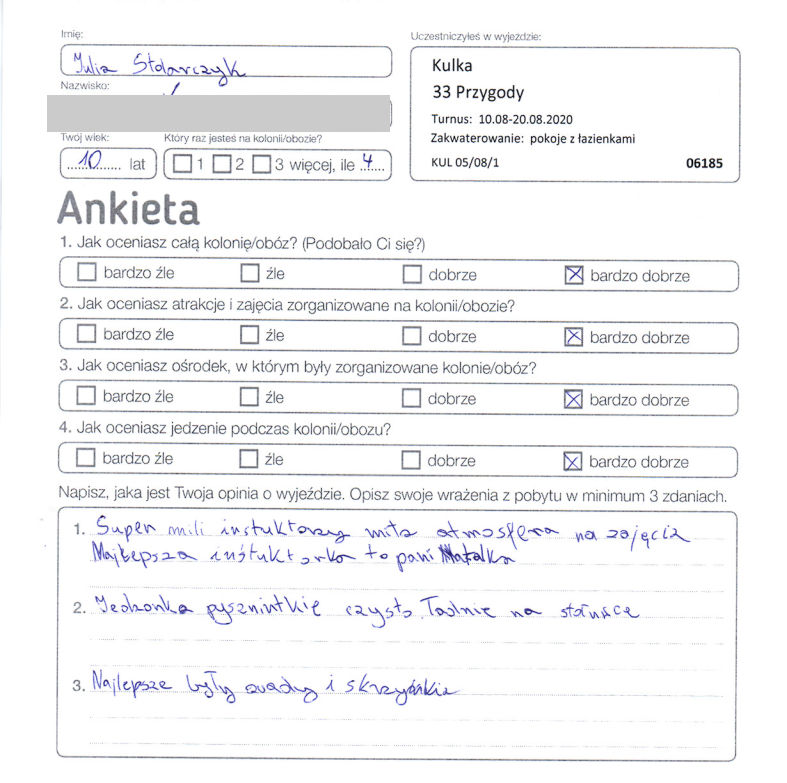 Imię:
Julia Stolarczyk
Nazwisko:
Uczestniczyłeś w wyjeździe:
Kulka
33 Przygody
Turnus: 10.08-20.08.2020
Zakwaterowanie: pokoje z łazienkami
KUL 05/08/1 06185
Twój wiek: Który raz jesteś na kolonii/obozie?
10 lat 1 2 3 więcej, ile 4
Ankieta
1. Jak oceniasz całą kolonię/obóz? (Podobało Ci się?)
bardzo źle źle dobrze bardzo dobrze
2. Jak oceniasz atrakcje i zajęcia zorganizowane na kolonii/obozie?
bardzo źle źle dobrze bardzo dobrze
3. Jak oceniasz ośrodek, w którym były zorganizowane kolonie/obóz?
bardzo źle źle dobrze bardzo dobrze
4. Jak oceniasz jedzenie podczas kolonii/obozu?
bardzo źle źle dobrze bardzo dobrze
Napisz, jaka jest Twoja opinia o wyjeździe. Opisz swoje wrażenia z pobytu w minimum 3 zdaniach.
1. Super mili instuktorzy miła atmosfera na zajęcia
Majlepsza instuktorka to pani Natalka
2. Jedzonka pyszniutkie czysto Ładnie na stołusce
3. Najlepsze były owady i skrzyńkia